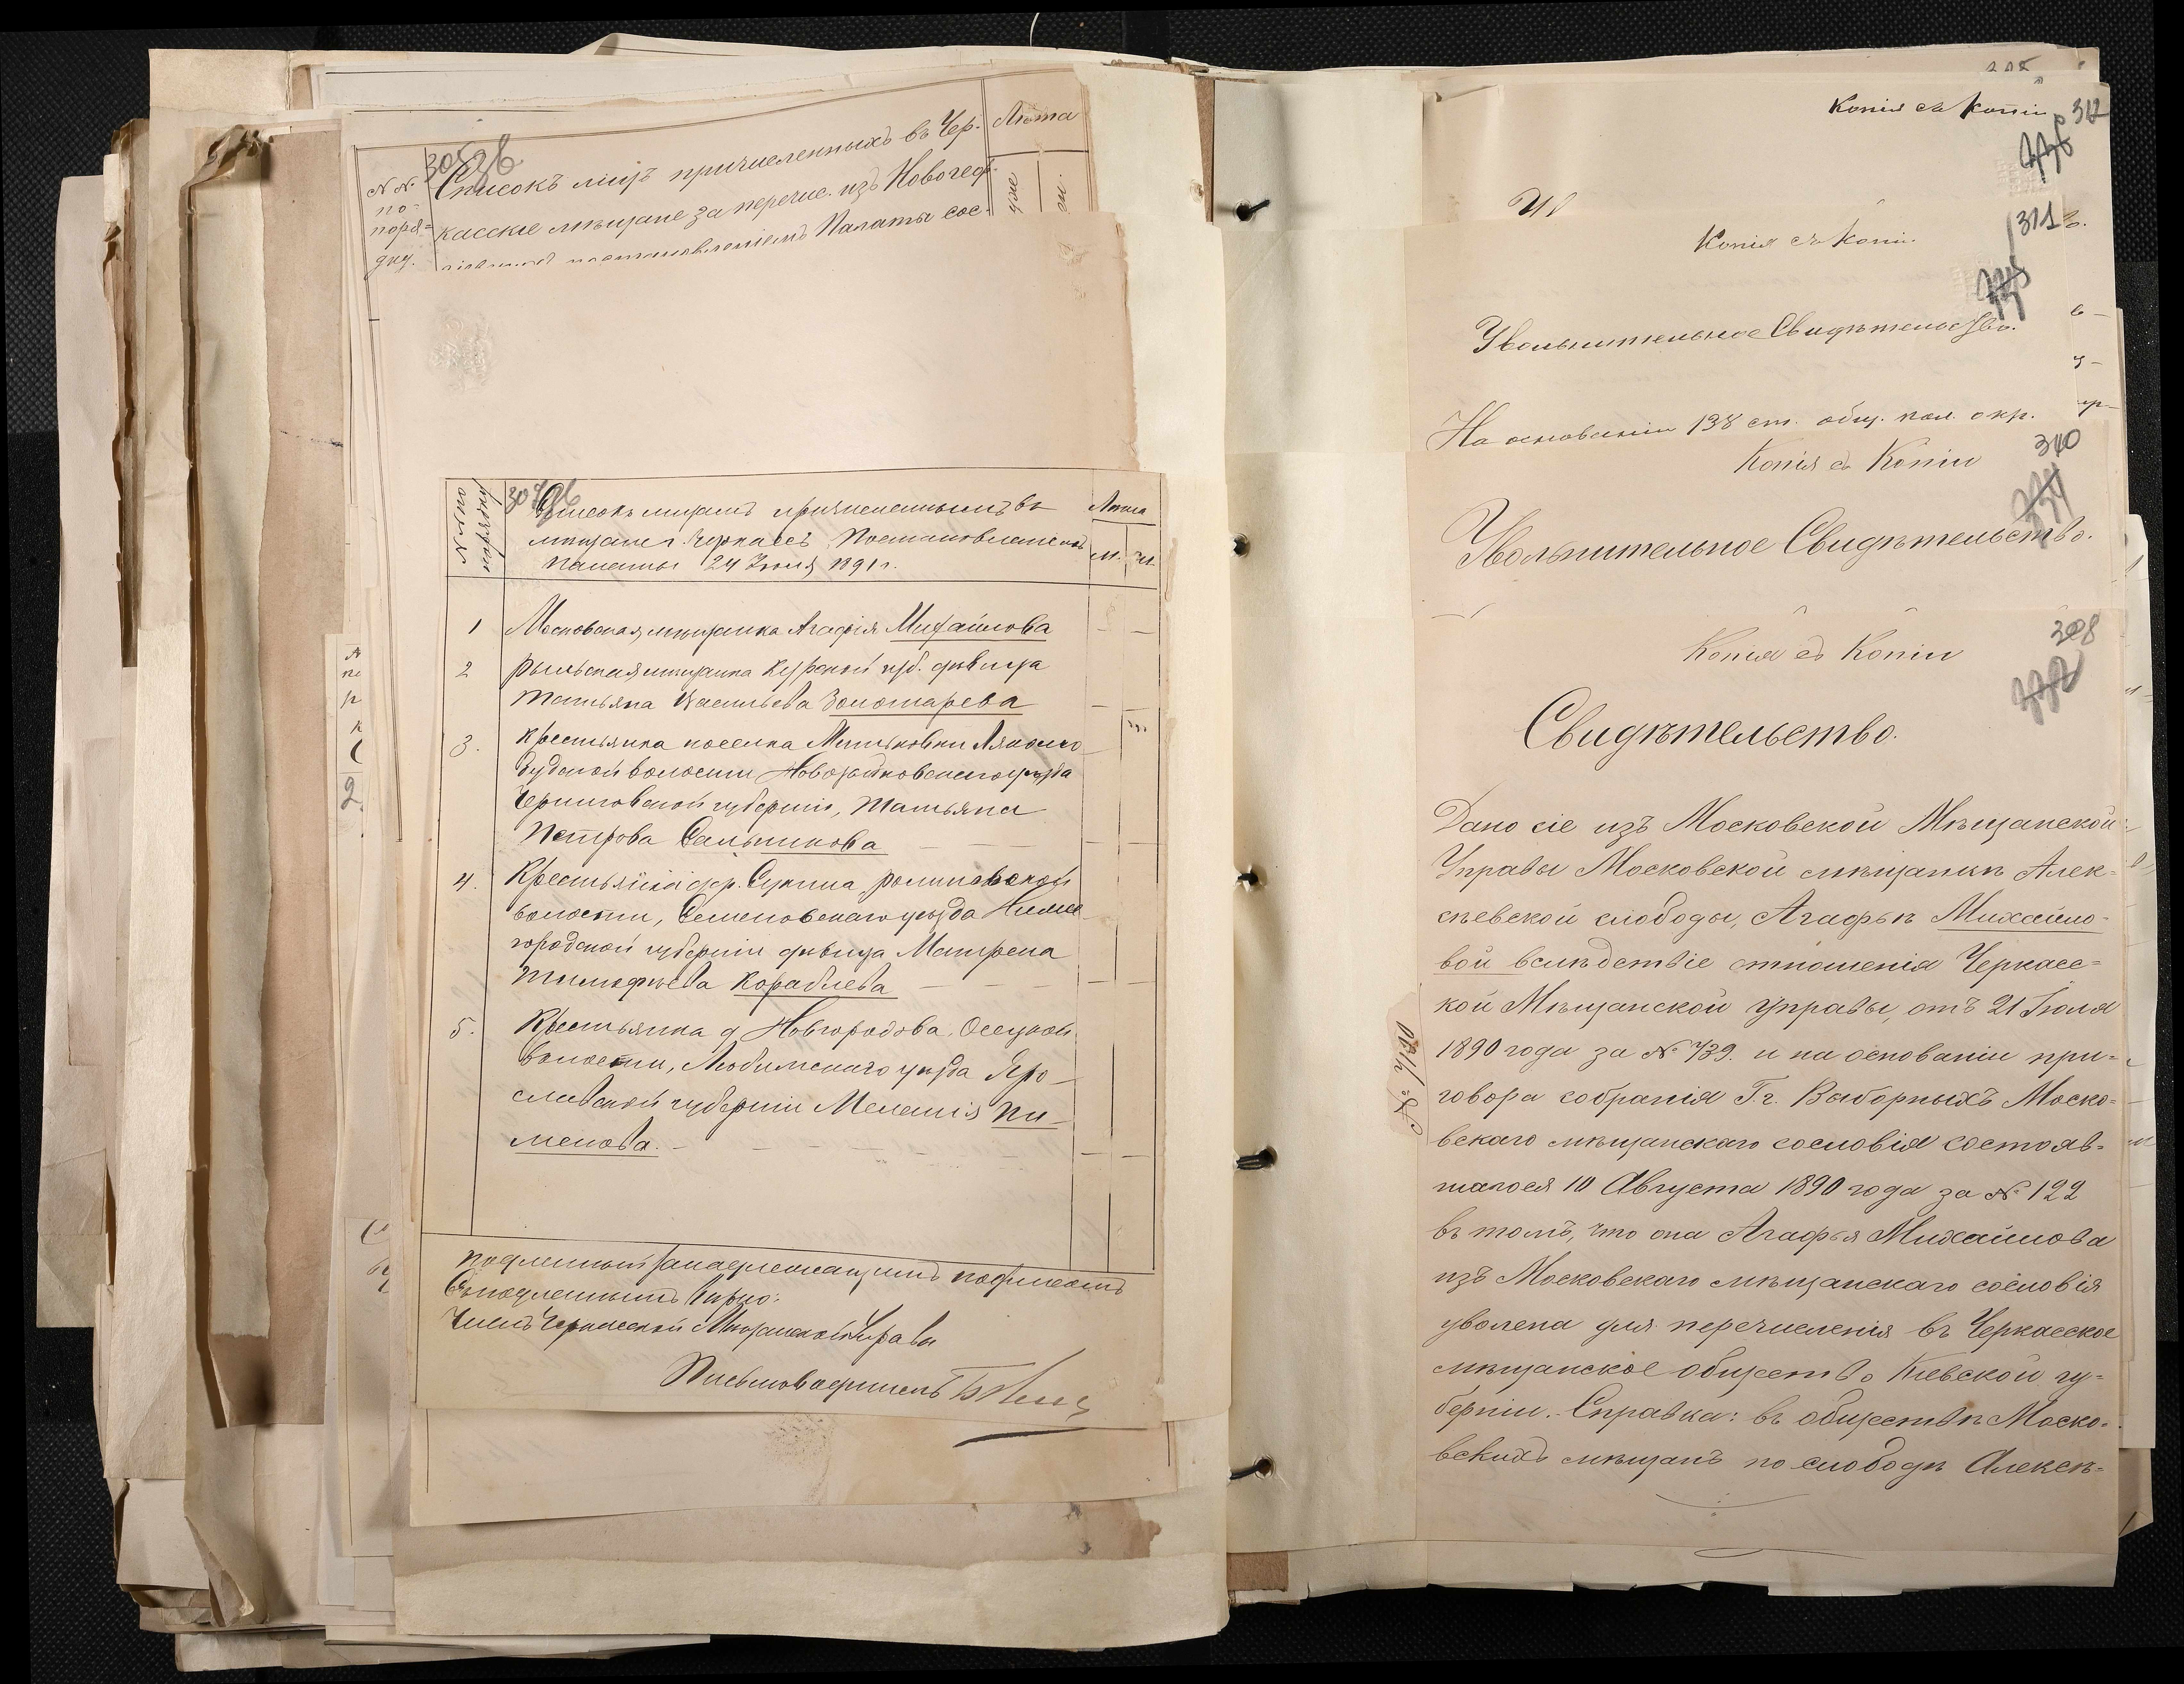 № №
по-
поряд=
дку.
Списокъ лицъ причисленныхъ въ Чер-
касскіе мѣщане за перечис. изъ Новогеор-
постановленіемъ Палаты сос-
Лѣта
№ № по
порядку
307об
Списокъ лицамъ причисленнымъ въ
мѣщане г. Черкассъ, Постановленіемъ
Палаты 24 Іюля 1891 г.
Лѣта
м. ж.
1 Московская мѣщанка Агафія Михайлова
2 Рыльская мѣщанка Курской губ. дѣвица
Татьяна Васильева Золотарева
3. Крестьянка поселка Митьковки
волости Новозыбковскаго уѣзда
Черниговской губерніи, Татьяна
Петрова Сальникова
4. Крестьянка дер.
волости, Семеновскаго уѣзда Ниже
городской губерніи дѣвица Матрена
Тимофѣева Кораблева
5. Крестьянка д. Новгородова, Осецкой
волости, Любимскаго уѣзда Яро-
славской губерніи Меланія Пи-
менова.
Подлинный за надлежащимъ подписомъ
Съ подлиннымъ вѣрно:
Членъ Черкасской Мѣщанской Управы
Письмоводитель
Копія съ копіи
312
Копія съ копіи
311
Увольнительное Свидѣтельство.
На основаніи 138 ст. общ. пол. о кр.
Копія съ Копіи
310
Увольнительное Свидѣтельство.
Копія съ Копіи
308
Свидѣтельство.
Дано сіе изъ Московской Мѣщанской
Управы Московской мѣщанкѣ Алек-
сѣевской слободы, Агафьѣ Михайло-
вой вслѣдствіе отношенія Черкас=
кой Мѣщанской Управы, отъ 21 Іюля
1890 года за № 739. и на основаніи при=
говора собранія Г.г. Выборныхъ Моско=
вскаго мѣщанскаго сословія состояв=
шагося 10 Августа 1890 года за № 122
въ томъ, что она Агафья Михайлова
изъ Московскаго мѣщанскаго сословія
уволена для перечисленія въ Черкасское
мѣщанское общество Кіевской гу=
берніи. Справка: въ обществѣ Моско=
вскихъ мѣщанъ по слободѣ Алексѣ=